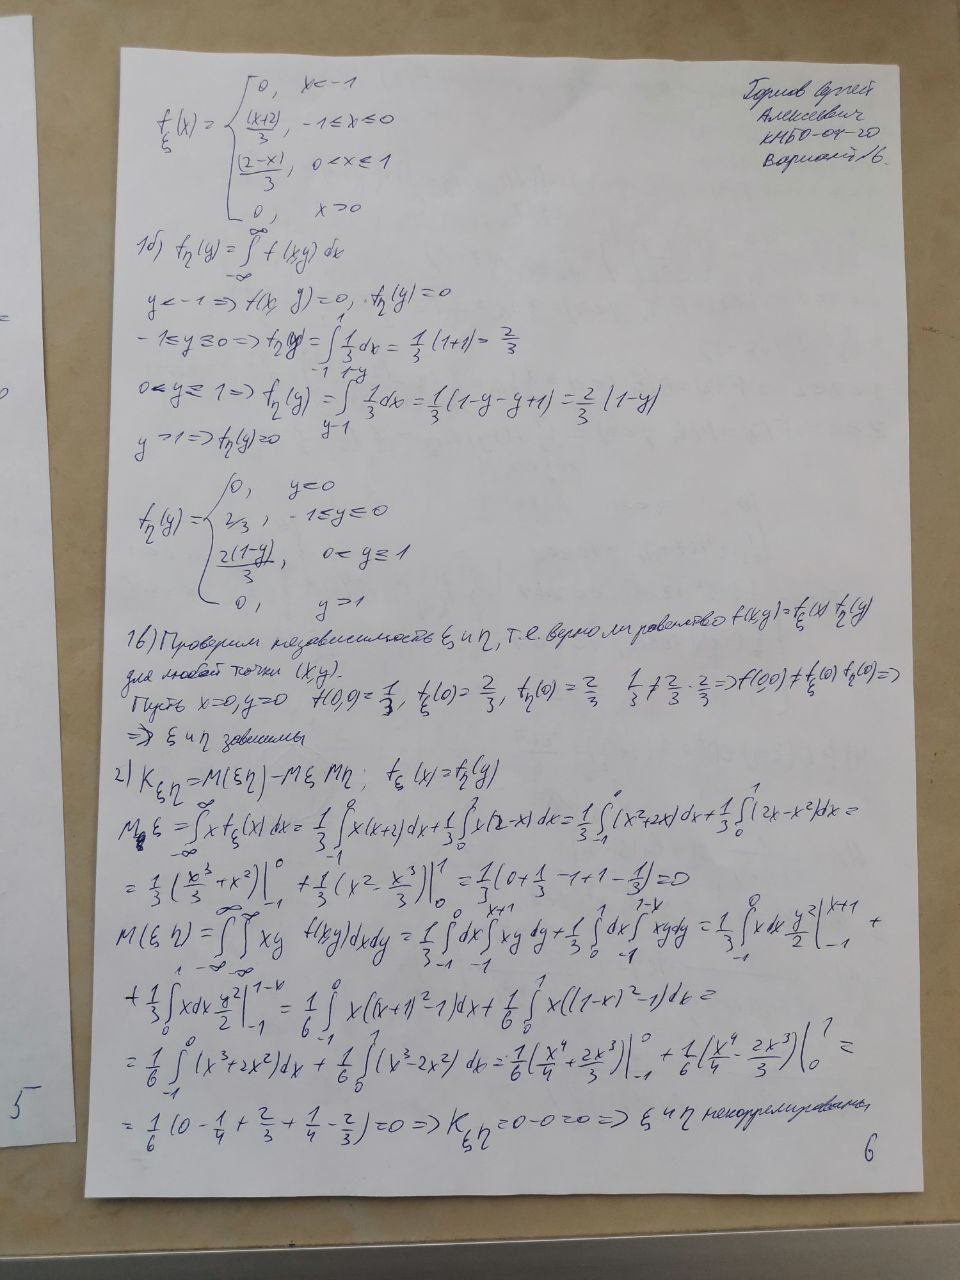 Горлов Сергей
Алексеевич
КМБО-04-20
Вариант 6.
f_ξ(x) = { 0, x < -1
(x+2)/3, -1 ≤ x ≤ 0
(2-x)/3, 0 < x ≤ 1
0, x > 0
1б) f_η(y) = ∫_{-∞}^{∞} f(x,y) dx
y < -1 => f(x, y) = 0, f_η(y) = 0
-1 ≤ y ≤ 0 => f_η(y) = ∫_{-1}^{1} 1/3 dx = 1/3 (1+1) = 2/3
0 < y ≤ 1 => f_η(y) = ∫_{y-1}^{1-y} 1/3 dx = 1/3 (1-y-y+1) = 2/3 (1-y)
y > 1 => f_η(y) = 0
f_η(y) = { 0, y < 0
2/3, -1 ≤ y ≤ 0
2(1-y)/3, 0 < y ≤ 1
0, y > 1
1в) Проверим независимость ξ и η, т.е. верно ли равенство f(x,y) = f_ξ(x) f_η(y)
для любой точки (x,y).
Пусть x=0, y=0 f(0,0) = 1/3, f_ξ(0) = 2/3, f_η(0) = 2/3 1/3 ≠ 2/3 · 2/3 => f(0,0) ≠ f_ξ(0) f_η(0) =>
=> ξ и η зависимы
2) K_{ξη} = M(ξη) - Mξ Mη; f_ξ(x) = f_η(y)
Mξ = ∫_{-∞}^{∞} x f_ξ(x) dx = 1/3 ∫_{-1}^{0} x(x+2) dx + 1/3 ∫_{0}^{1} x(2-x) dx = 1/3 ∫_{-1}^{0} (x²+2x) dx + 1/3 ∫_{0}^{1} (2x-x²) dx =
= 1/3 (x³/3 + x²) |_{-1}^{0} + 1/3 (x² - x³/3) |_{0}^{1} = 1/3 (0 + 1/3 - 1 + 1 - 1/3) = 0
M(ξ η) = ∫_{-∞}^{∞} ∫_{-∞}^{∞} xy f(x,y) dx dy = 1/3 ∫_{-1}^{0} dx ∫_{-1}^{x+1} xy dy + 1/3 ∫_{0}^{1} dx ∫_{-1}^{1-x} xy dy = 1/3 ∫_{-1}^{0} x dx y²/2 |_{-1}^{x+1} +
+ 1/3 ∫_{0}^{1} x dx y²/2 |_{-1}^{1-x} = 1/6 ∫_{-1}^{0} x((x+1)²-1) dx + 1/6 ∫_{0}^{1} x((1-x)²-1) dx =
= 1/6 ∫_{-1}^{0} (x³+2x²) dx + 1/6 ∫_{0}^{1} (x³-2x²) dx = 1/6 (x⁴/4 + 2x³/3) |_{-1}^{0} + 1/6 (x⁴/4 - 2x³/3) |_{0}^{1} =
= 1/6 (0 - 1/4 + 2/3 + 1/4 - 2/3) = 0 => K_{ξη} = 0-0=0 => ξ и η некоррелированы
6
5